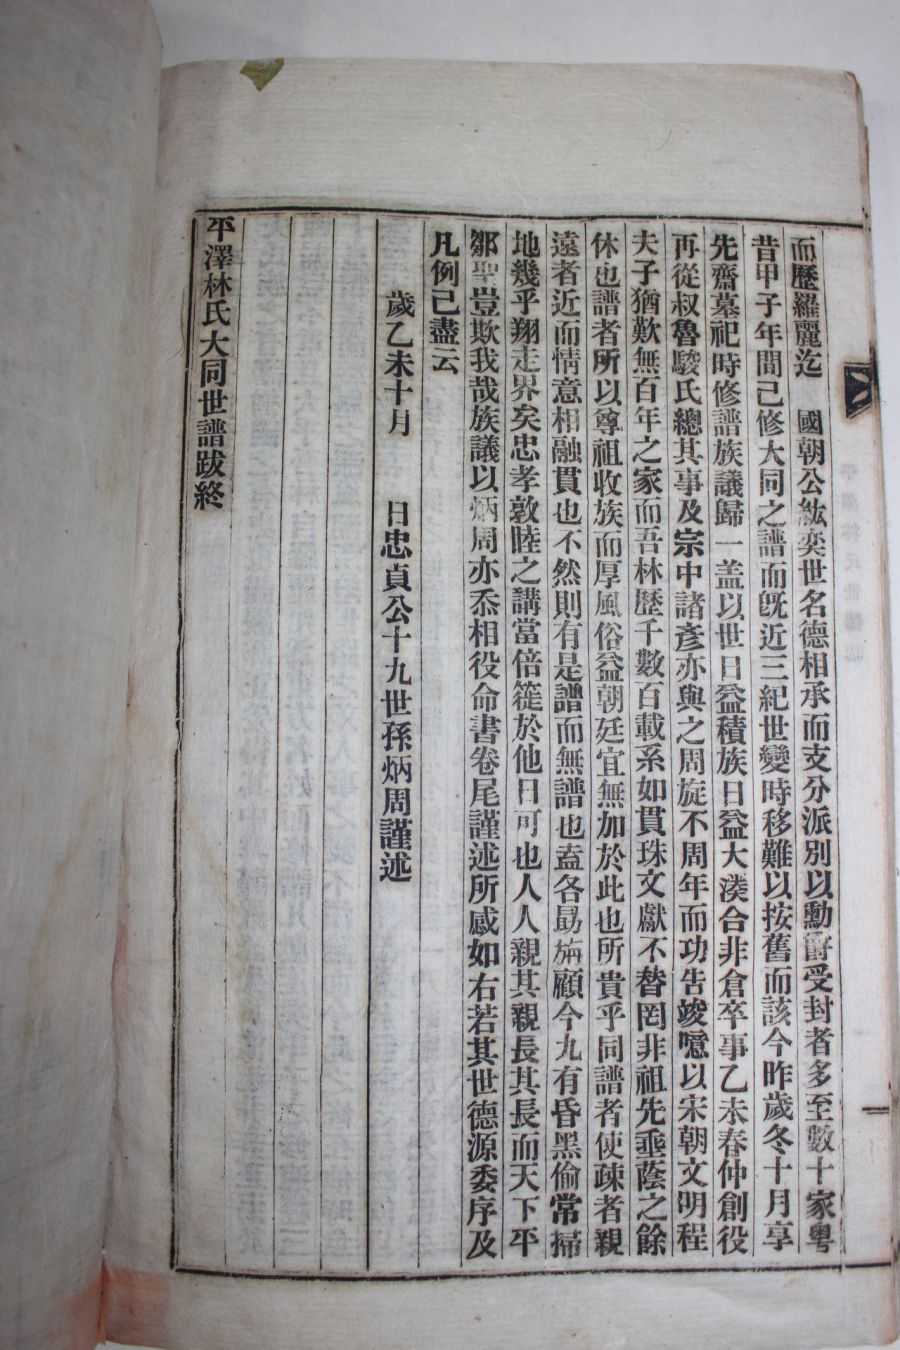 而歷羅麗迄 國朝公紘奕世名德相承而支分派別以勳爵受封者多至數十家粤
昔甲子年間已修大同之譜而旣近三紀世變時移難以按舊而該今昨歲冬十月享
先齋墓祀時修譜族議歸一盖以世日益積族日益大湊合非倉卒事乙未春仲創役
再從叔魯駿氏總其事及宗中諸彥亦與之周旋不周年而功告竣噫以宋朝文明程
夫子猶歎無百年之家而吾林歷千數百載系如貫珠文獻不替罔非祖先垂蔭之餘
休也譜者所以尊祖收族而厚風俗益朝廷宜無加於此也所貴乎同譜者使疎者親
遠者近而情意相融貫也不然則有是譜而無譜也盍各勗旃顧今九有昏黑倫常掃
地幾乎翔走界矣忠孝敦睦之講當倍簁於他日可也人人親其親長其長而天下平
鄒聖豈欺我哉族議以炳周亦忝相役命書卷尾謹述所感如右若其世德源委序及
凡例已盡云
歲乙未十月 日忠貞公十九世孫炳周謹述
平澤林氏大同世譜跋終